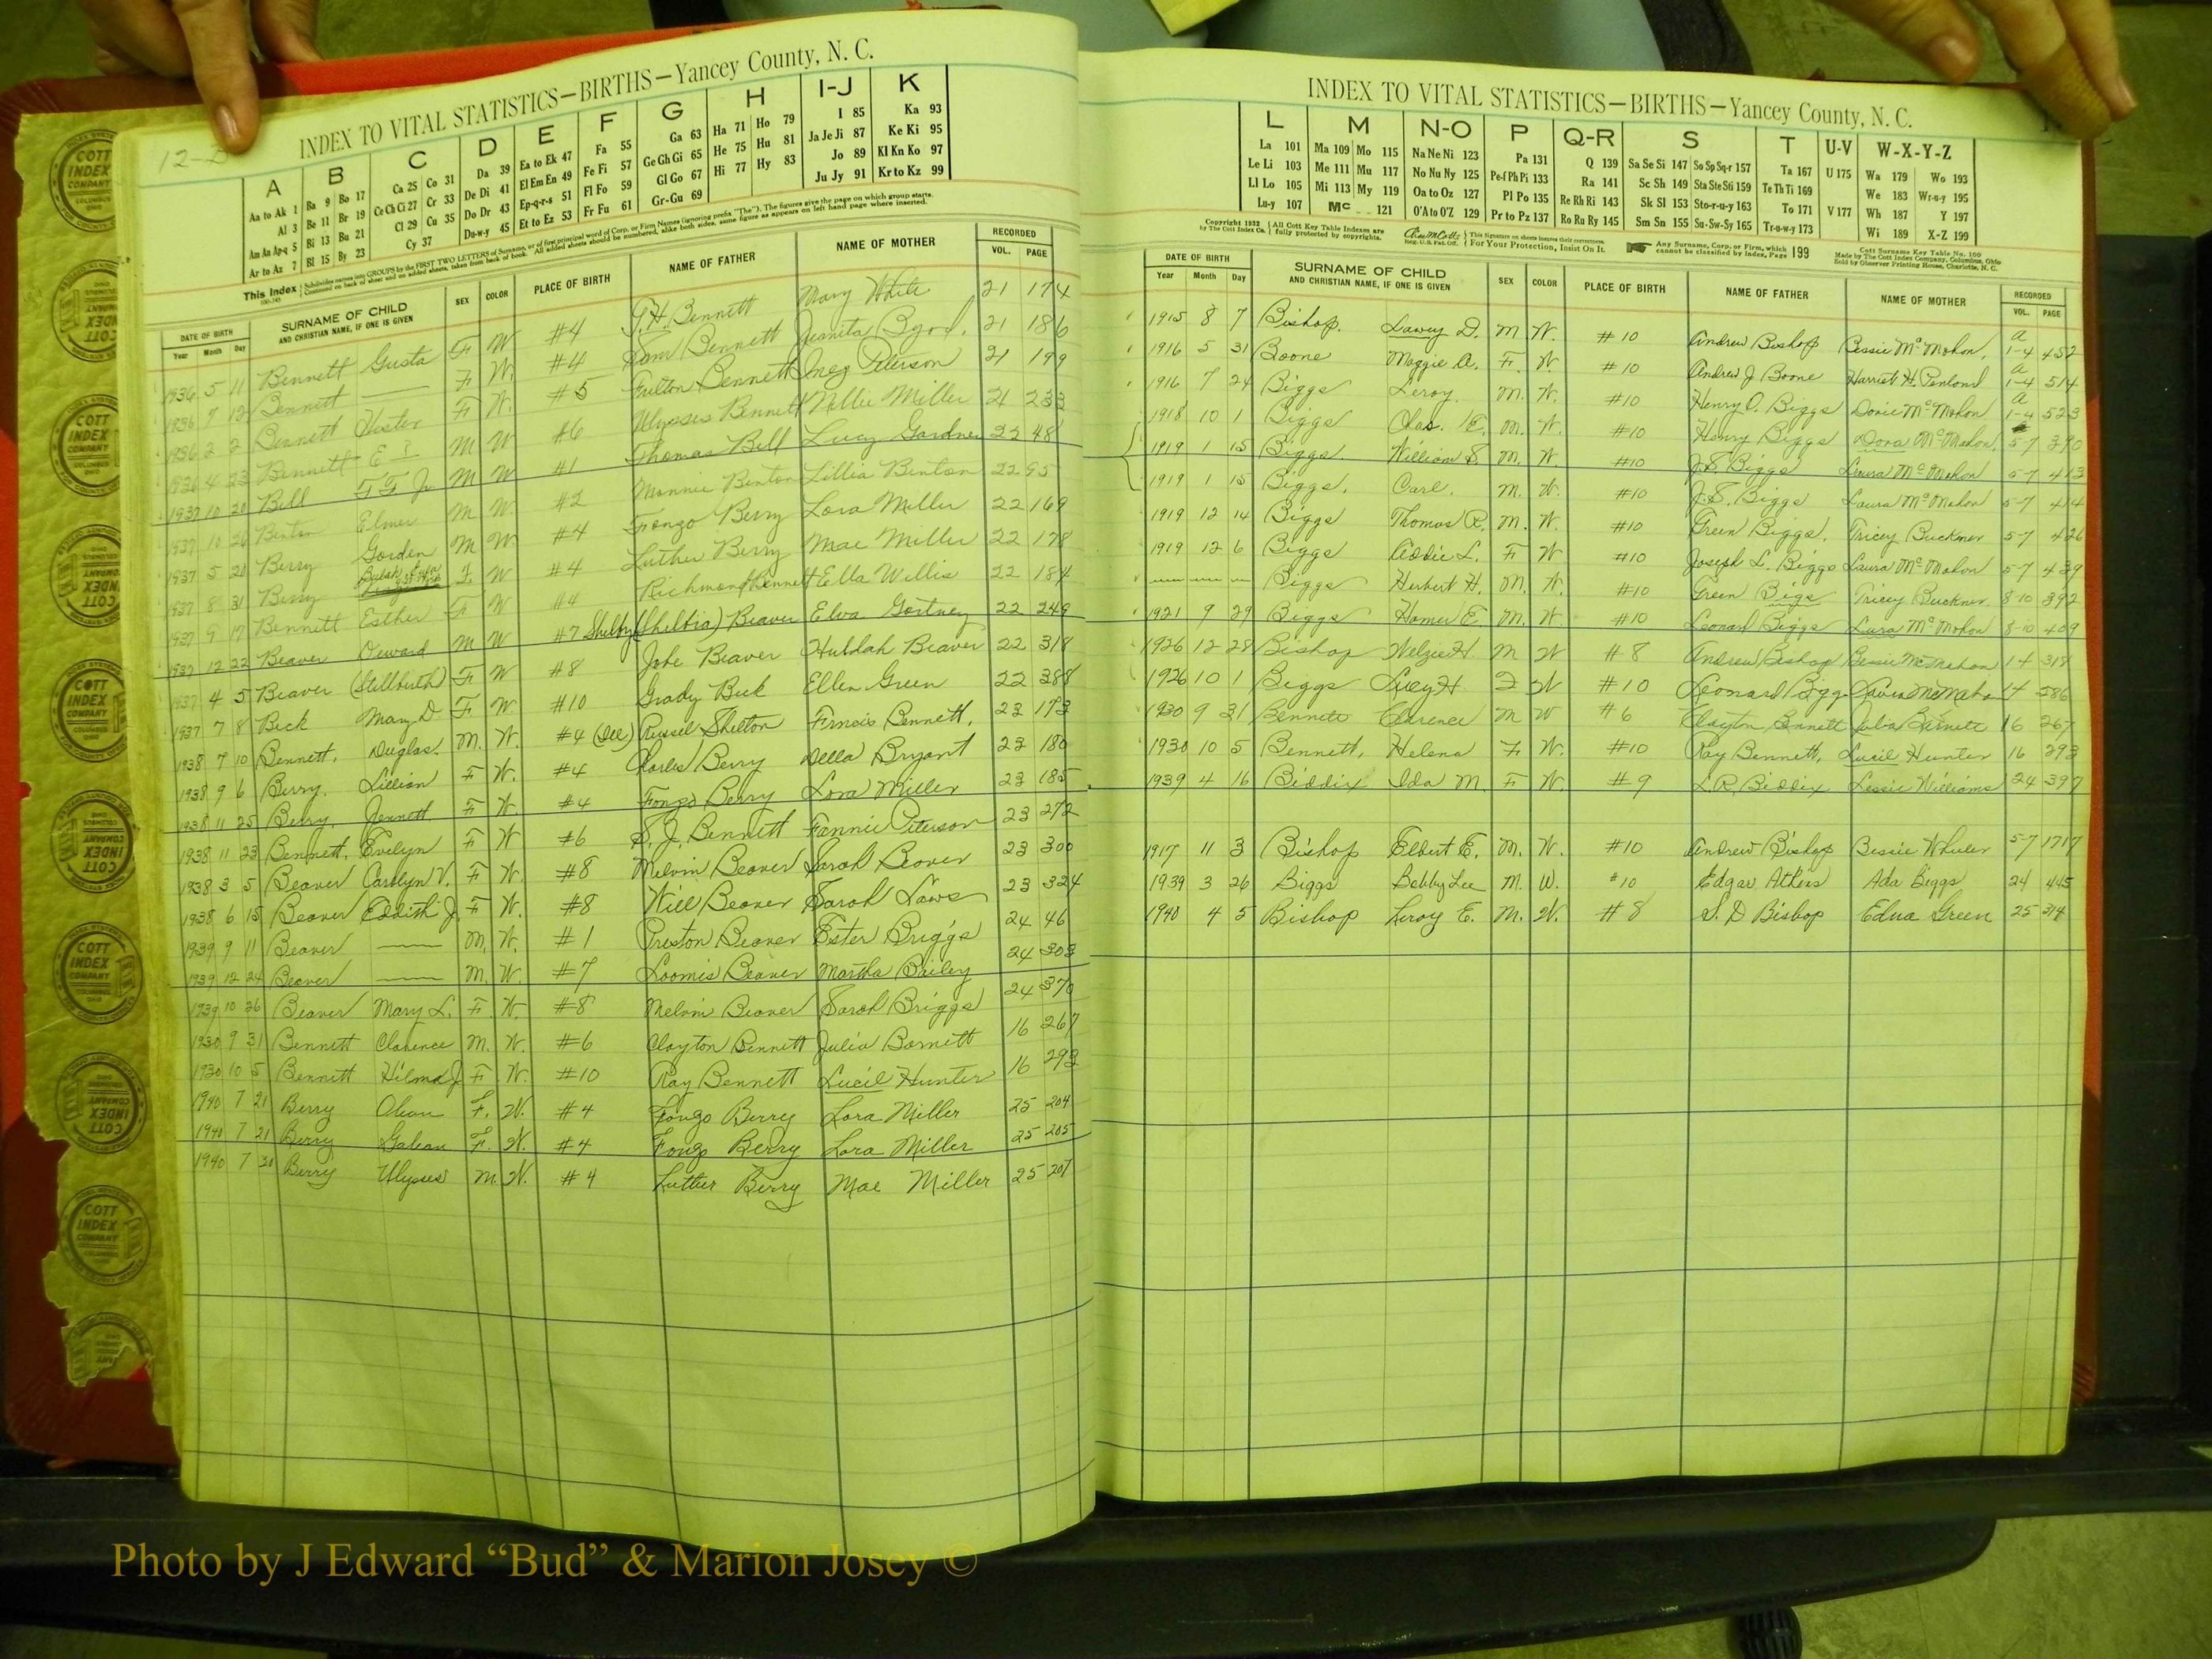 12-B
INDEX TO VITAL STATISTICS—BIRTHS—Yancey County, N. C.
A B C D E F G H I-J K
Aa to Ak 1 Ba 9 Bo 17 Ca 25 Co 31 Da 39 Ea to Ek 47 Fa 55 Ga 63 Ha 71 Ho 79 I 85 Ka 93
Al 3 Be 11 Br 19 Ce Ch Ci 27 Cr 33 De Di 41 El Em En 49 Fe Fi 57 Ge Gh Gi 65 He 75 Hu 81 Ja Je Ji 87 Ke Ki 95
Am An Ap-q 5 Bi 13 Bu 21 Cl 29 Cu 35 Do Dr 43 Ep-q-r-s 51 Fl Fo 59 Gl Go 67 Hi 77 Hy 83 Jo 89 Kl Kn Ko 97
Ar to Az 7 Bl 15 By 23 Cy 37 Du-w-y 45 Et to Ez 53 Fr Fu 61 Gr-Gu 69 Ju Jy 91 Kr to Kz 99
This Index Subdivides names into GROUPS by the FIRST TWO LETTERS of Surname, or of first principal word of Corp. or Firm Names (ignoring prefix "The"). The figures give the page on which group starts.
Continued on back of sheet and on added sheets, taken from back of book. All added sheets should be numbered, alike both sides, same figure as appears on left hand page where inserted.
DATE OF BIRTH Year Month Day SURNAME OF CHILD AND CHRISTIAN NAME, IF ONE IS GIVEN SEX COLOR PLACE OF BIRTH NAME OF FATHER NAME OF MOTHER RECORDED VOL. PAGE
1936 5 11 Bennett Gusta F W #4 G.H. Bennett Mary White 21 174
1936 7 12 Bennett —— F W. #4 Sam Bennett Jeanita Byrd. 21 186
1936 2 2 Bennett Hester F W. #5 Fulton Bennett Inez Peterson 21 199
1936 4 23 Bennett E ? M W #6 Ulysses Bennett Nellie Miller 21 233
1937 10 20 Bell F F Jr M W #1 Thomas Bell Lucy Gardner 22 48
1937 10 26 Benton Elmer M W. #2 Monnie Benton Lillia Benton 22 95
1937 5 20 Berry Gorden M W #4 Fonzo Berry Lora Miller 22 169
1937 8 31 Berry Bulah F. W #4 Luther Berry Mae Miller 22 178
1937 9 17 Bennett Esther F W #4 Richmond Bennett Ella Willis 22 184
1937 12 22 Beaver Deward M W #7 Shelby (Shelbia) Beaver Elva Gortney 22 249
1937 4 5 Beaver (Stillbirth) F W #8 Jobe Beaver Huldah Beaver 22 318
1937 7 8 Beck Mary D. F W. #10 Grady Beck Ellen Green 22 388
1938 7 10 Bennett, Douglas. M. W. #4 (Ill) Russel Shelton Frncis Bennett, 23 173
1938 9 6 Berry. Lillian F W. #4 Charles Berry Della Bryant 23 180
1938 11 25 Berry, Jennett F W. #4 Fonzo Berry Lora Miller 23 185
1938 11 23 Bennett, Evelyn F W #6 S. J. Bennett Fannie Peterson 23 272
1938 3 5 Beaver Carolyn V. F W. #8 Melvin Beaver Sarah Beaver 23 300
1938 6 15 Beaver Eddith J. F W. #8 Will Beaver Sarah Laws 23 324
1939 9 11 Beaver —— M. W. #1 Preston Beaver Ester Briggs 24 46
1939 12 24 Beaver —— M. W. #7 Loomis Beaver Martha Bailey 24 303
1939 10 26 Beaver Mary L. F. W. #8 Melvin Beaver Sarah Briggs 24 370
1930 9 31 Bennett Clarence M. W. #6 Clayton Bennett Julia Barnett 16 267
1930 10 5 Bennett Hilma J. F. W. #10 Ray Bennett Lucil Hunter 16 293
1940 7 21 Berry Olean F. W. #4 Fonzo Berry Lora Miller 25 204
1940 7 21 Berry Galean F. W. #4 Fonzo Berry Lora Miller 25 205
1940 7 30 Berry Ulysses M. W. #4 Luther Berry Mae Miller 25 207
INDEX TO VITAL STATISTICS—BIRTHS—Yancey County, N. C.
L M N-O P Q-R S T U-V W-X-Y-Z
La 101 Ma 109 Mo 115 Na Ne Ni 123 Pa 131 Q 139 Sa Se Si 147 So Sp Sq-r 157 Ta 167 U 175 Wa 179 Wo 193
Le Li 103 Me 111 Mu 117 No Nu Ny 125 Pe-f Ph Pi 133 Ra 141 Sc Sh 149 Sta Ste Sti 159 Te Th Ti 169 We 183 Wr-u-y 195
Ll Lo 105 Mi 113 My 119 Oa to Oz 127 Pl Po 135 Re Rh Ri 143 Sk Sl 153 Sto-r-u-y 163 To 171 V 177 Wh 187 Y 197
Lu-y 107 Mc 121 O'A to O'Z 129 Pr to Pz 137 Ro Ru Ry 145 Sm Sn 155 Su-Sw-Sy 165 Tr-u-w-y 173 Wi 189 X-Z 199
Copyright 1932 by The Cott Index Co. All Cott Key Table Indexes are fully protected by copyrights. Reg. U.S. Pat. Off. This Signature on sheets insures their correctness. For Your Protection, Insist On It. Any Surname, Corp. or Firm, which cannot be classified by Index, Page 199 Cott Surname Key Table No. 100 Made by The Cott Index Company, Columbus, Ohio Sold by Observer Printing House, Charlotte, N. C.
DATE OF BIRTH Year Month Day SURNAME OF CHILD AND CHRISTIAN NAME, IF ONE IS GIVEN SEX COLOR PLACE OF BIRTH NAME OF FATHER NAME OF MOTHER RECORDED VOL. PAGE
1915 8 7 Bishop. Lawey D. M W. #10 Andrew Bishop Bessie McMohon, a 1-4 452
1916 5 31 Boone Maggie A. F. W #10 Andrew J Boone Harriet H. Penland a 1-4 514
1916 7 24 Biggs Leroy. M. W. #10 Henry O. Biggs Dovie McMohon a 1-4 523
1918 10 1 Biggs Chas. E. M. W. #10 Henry Biggs Dora McMahon, 5-7 390
1919 1 15 Biggs. William S. M. W. #10 J.S. Biggs Laura McMohon 5-7 413
1919 1 15 Biggs. Carl. M. W. #10 J.S. Biggs Laura McMohon 5-7 414
1919 12 14 Biggs Thomas R. M. W. #10 Green Biggs. Tricey Buckner 5-7 426
1919 12 6 Biggs Addie L. F W #10 Joseph L. Biggs Laura McMahon 5-7 439
Biggs Herbert H. M. W. #10 Green Bigs Tricey Buckner 8-10 392
1921 9 29 Biggs Homer E. M. W #10 Leonard Biggs Lura McMohon 8-10 409
1926 12 28 Bishop Welzie H. M W #8 Andrew Bishop Bessie McMahon 14 318
1926 10 1 Biggs Lucy H F W #10 Leonard Bigg Lavra McMahan 14 586
1930 9 31 Bennett Clarence M W #6 Clayton Bennett Julia Barnett 16 267
1930 10 5 Bennett, Helena F W. #10 Ray Bennett, Lucil Hunter 16 293
1939 4 16 Biddix Ida M. F W. #9 L.R. Biddix Lessie Williams 24 397
1917 11 3 Bishop Elbert E. M. W. #10 Andrew Bishop Bessie Wheeler 5-7 1717
1939 3 26 Biggs Bobby Lee M. W. #10 Edgar Atkins Ada Biggs 24 445
1940 4 5 Bishop Leroy E. M. W. #8 S. D Bishop Edna Green 25 314
COTT INDEX COMPANY COLUMBUS OHIO
Photo by J Edward “Bud” & Marion Josey ©